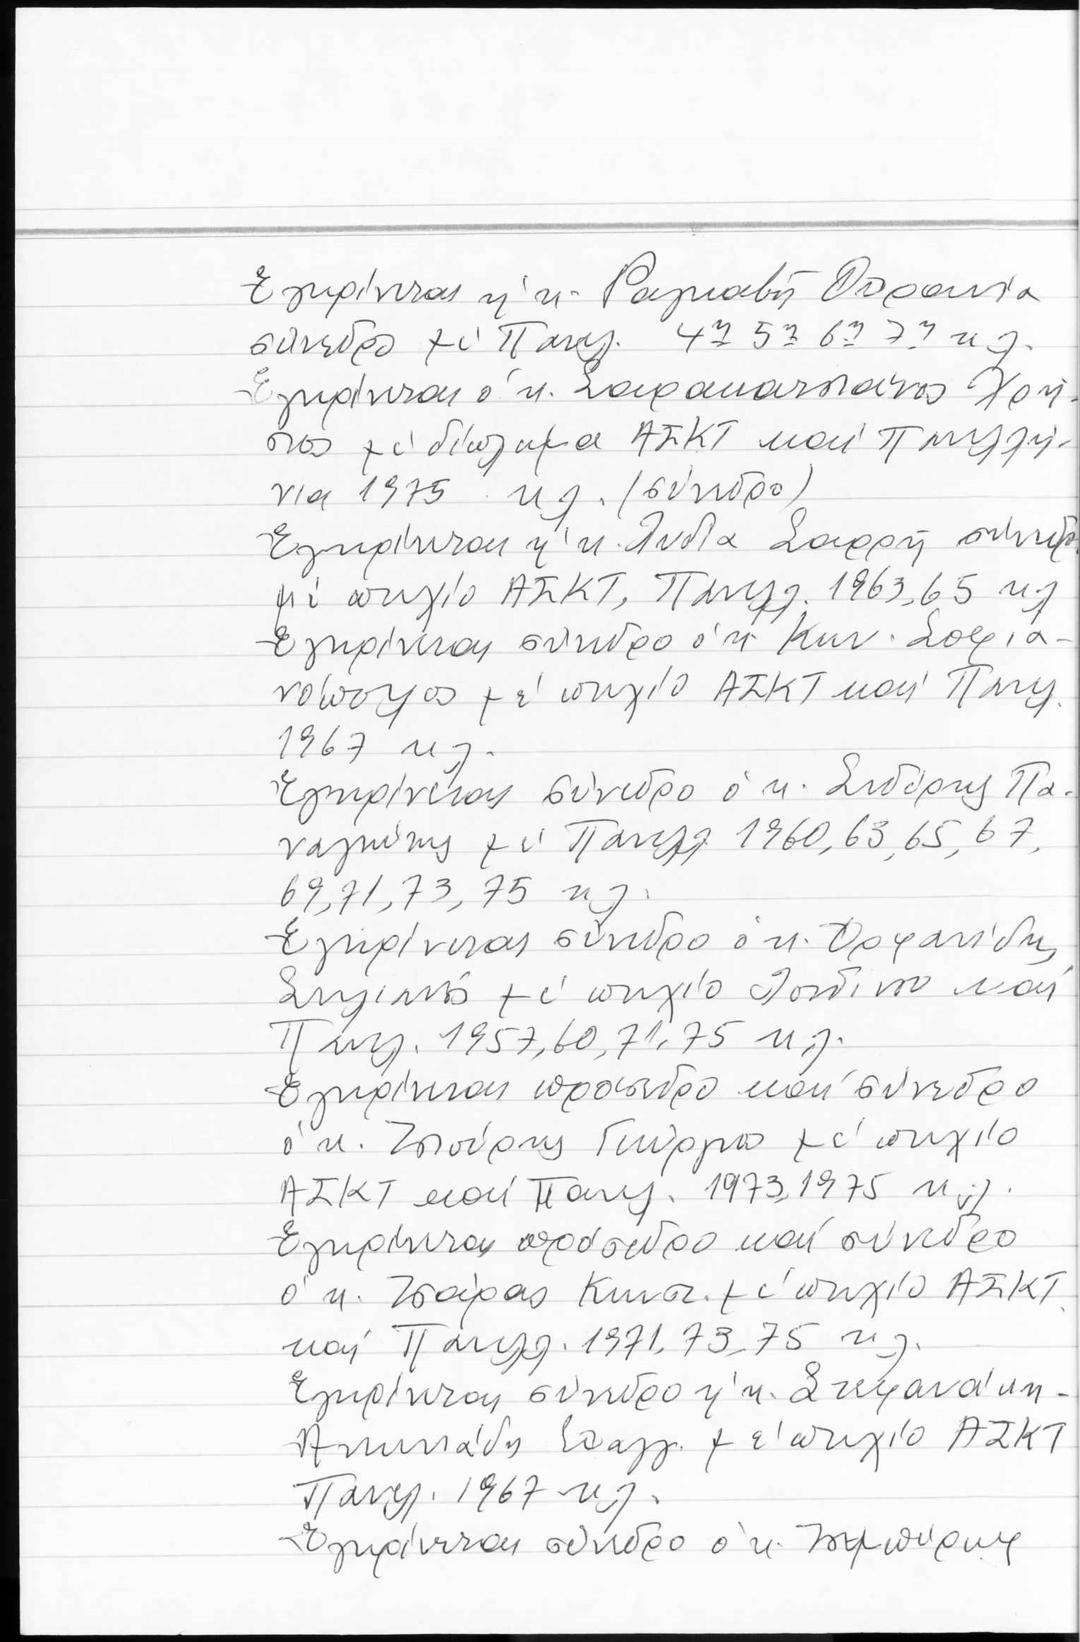 Ἐγκρίνεται ἡ κ. Ραγκαβῆ Οὐρανία
σύνεδρο μέ Πανελ. 4η 5η 6η 7η κ.λ.
Ἐγκρίνεται ὁ κ. Σαρακατσιάνος Χρῆ-
στος μέ δίπλωμα ΑΣΚΤ καί Πανελλή-
νια 1975 κ.λ. (σύνεδρο)
Ἐγκρίνεται ἡ κ. Λυδία Σαρρῆ σύνεδρο
μέ πτυχίο ΑΣΚΤ, Πανελλ. 1963, 65 κ.λ
Ἐγκρίνεται σύνεδρο ὁ κ Κων. Σοφια-
νόπουλος μέ πτυχίο ΑΣΚΤ καί Πανελ.
1967 κ.λ.
Ἐγκρίνεται σύνεδρο ὁ κ. Σιδέρης Πα-
ναγιώτης μέ Πανελλ 1960, 63, 65, 67,
69, 71, 73, 75 κ.λ.
Ἐγκρίνεται σύνεδρο ὁ κ. Ὀρφανίδης
μέ πτυχίο Λονδίνου καί
Πανελ. 1957, 60, 71, 75 κ.λ.
Ἐγκρίνεται πρόεδρο καί σύνεδρο
ὁ κ. Γιώργιο μέ πτυχίο
ΑΣΚΤ καί Πανελ. 1973, 1975 κ.λ.
Ἐγκρίνεται πρόεδρο καί σύνεδρο
ὁ κ. Τσάρας Κωνστ. μέ πτυχίο ΑΣΚΤ
καί Πανελλ. 1971, 73, 75 κ.λ.
Ἐγκρίνεται σύνεδρο ἡ κ. Στεφανάκη-
μέ πτυχίο ΑΣΚΤ
Πανελ. 1967 κ.λ.
Ἐγκρίνεται σύνεδρο ὁ κ.